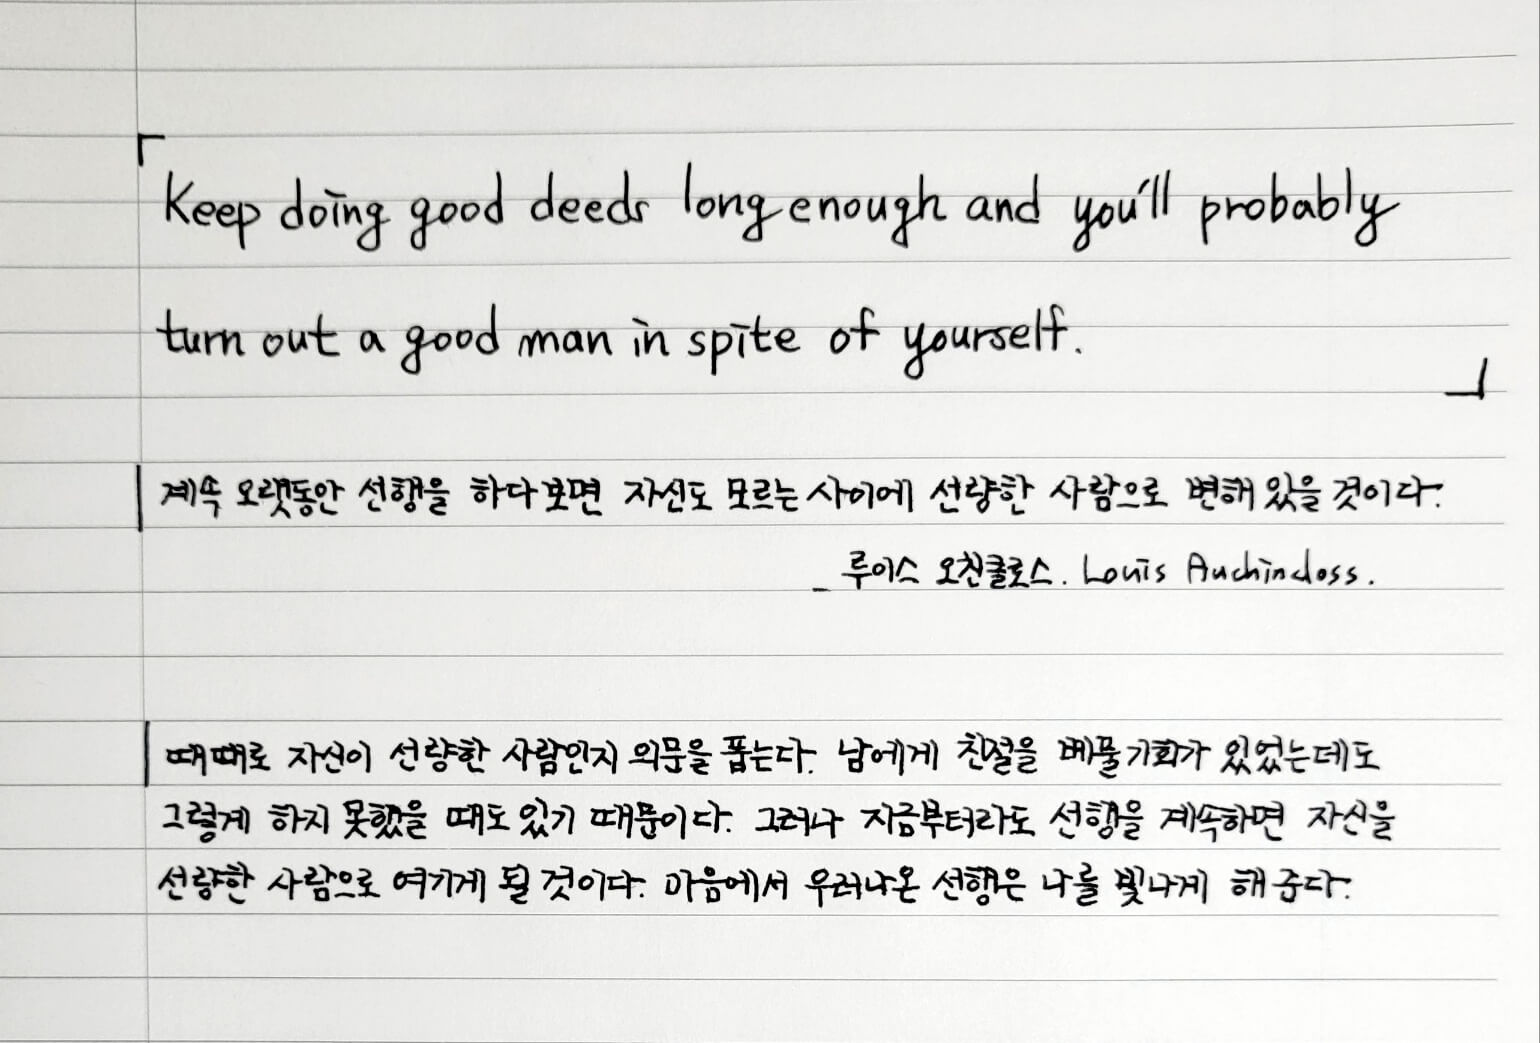 「Keep doing good deeds long enough and you'll probably
turn out a good man in spite of yourself.」
계속 오랫동안 선행을 하다보면 자신도 모르는 사이에 선량한 사람으로 변해 있을 것이다.
_ 루이스 오친클로스. Louis Auchincloss.
때때로 자신이 선량한 사람인지 의문을 품는다. 남에게 친절을 베풀 기회가 있었는데도
그렇게 하지 못했을 때도 있기 때문이다. 그러나 지금부터라도 선행을 계속하면 자신을
선량한 사람으로 여기게 될 것이다. 마음에서 우러나온 선행은 나를 빛나게 해 준다.